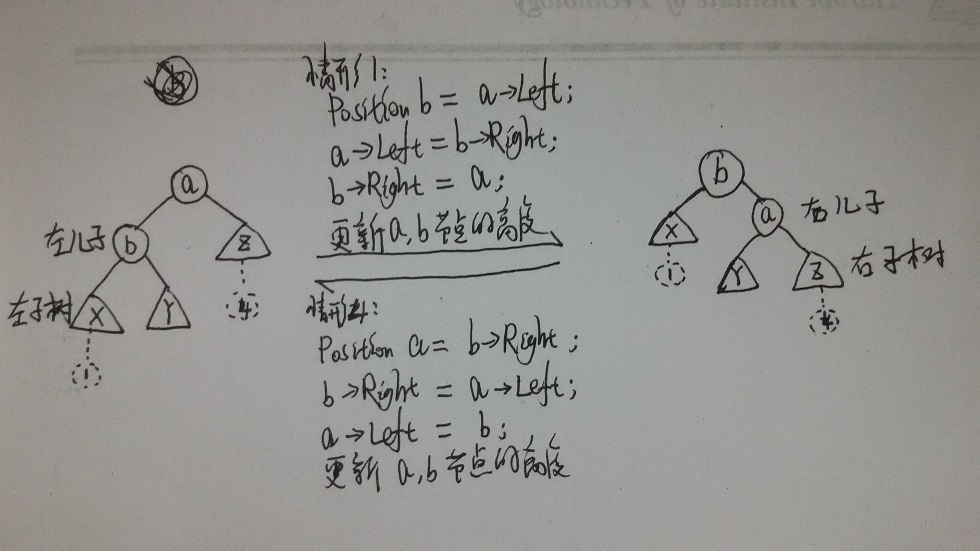 情形1:
Position b = a→Left;
a→Left = b→Right;
b→Right = a;
更新a,b节点的高度
a
左儿子 b
Z
左子树 X
Y
4
1
b
X
a 右儿子
1
Y
Z 右子树
4
情形4:
Position a = b→Right;
b→Right = a→Left;
a→Left = b;
更新a,b节点的高度